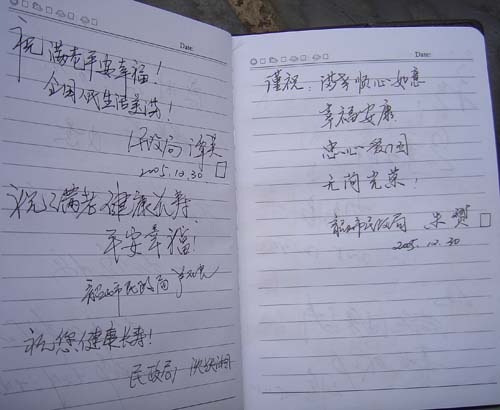 Date:
祝满老平安幸福!
全国人民生活美满!
民政局
2005.10.30
祝 健康长寿
平安幸福!
市民政局
祝您健康长寿!
民政局
Date:
谨祝: 满老顺心如意
幸福安康
忠心爱国
光荣!
市民政局 朱
2005.10.30